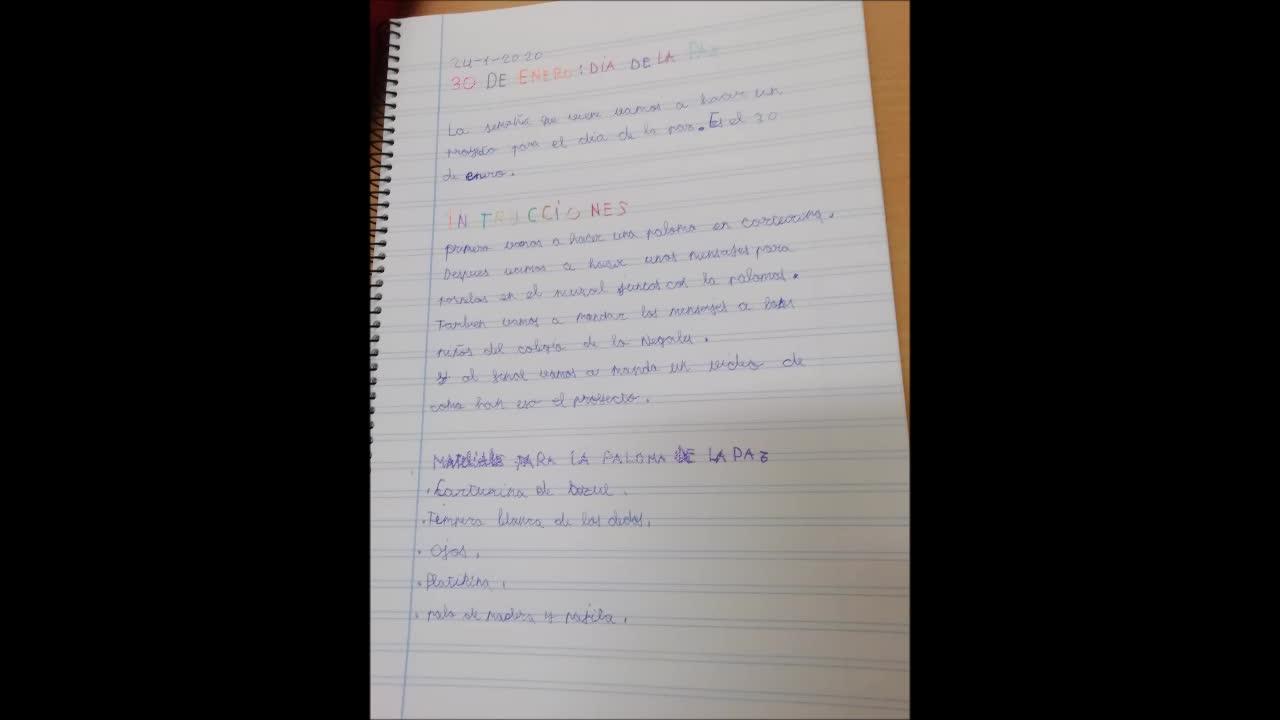 24-1-2020
30 DE ENERO: DÍA DE LA PAZ
La semana que viene vamos a hacer un
proyecto para el día de la paz. Es el 30
de enero.
INTRUCCIONES
primero vamos a hacer una paloma en cartulina.
Despues vamos a hacer unos mensajes para
ponelos en el mural juntos con la palomas.
Tambien vamos a mandar los mensajes a los
niños del colegio de la Negales.
y al final vamos a manda un video de
como han eso el proyecto.
MATERIALES PARA LA PALOMA DE LA PAZ
. Carturina de azul.
. Tempera blanca de los dedos.
. Ojos.
. Platilina.
. palo de madera y pajita.